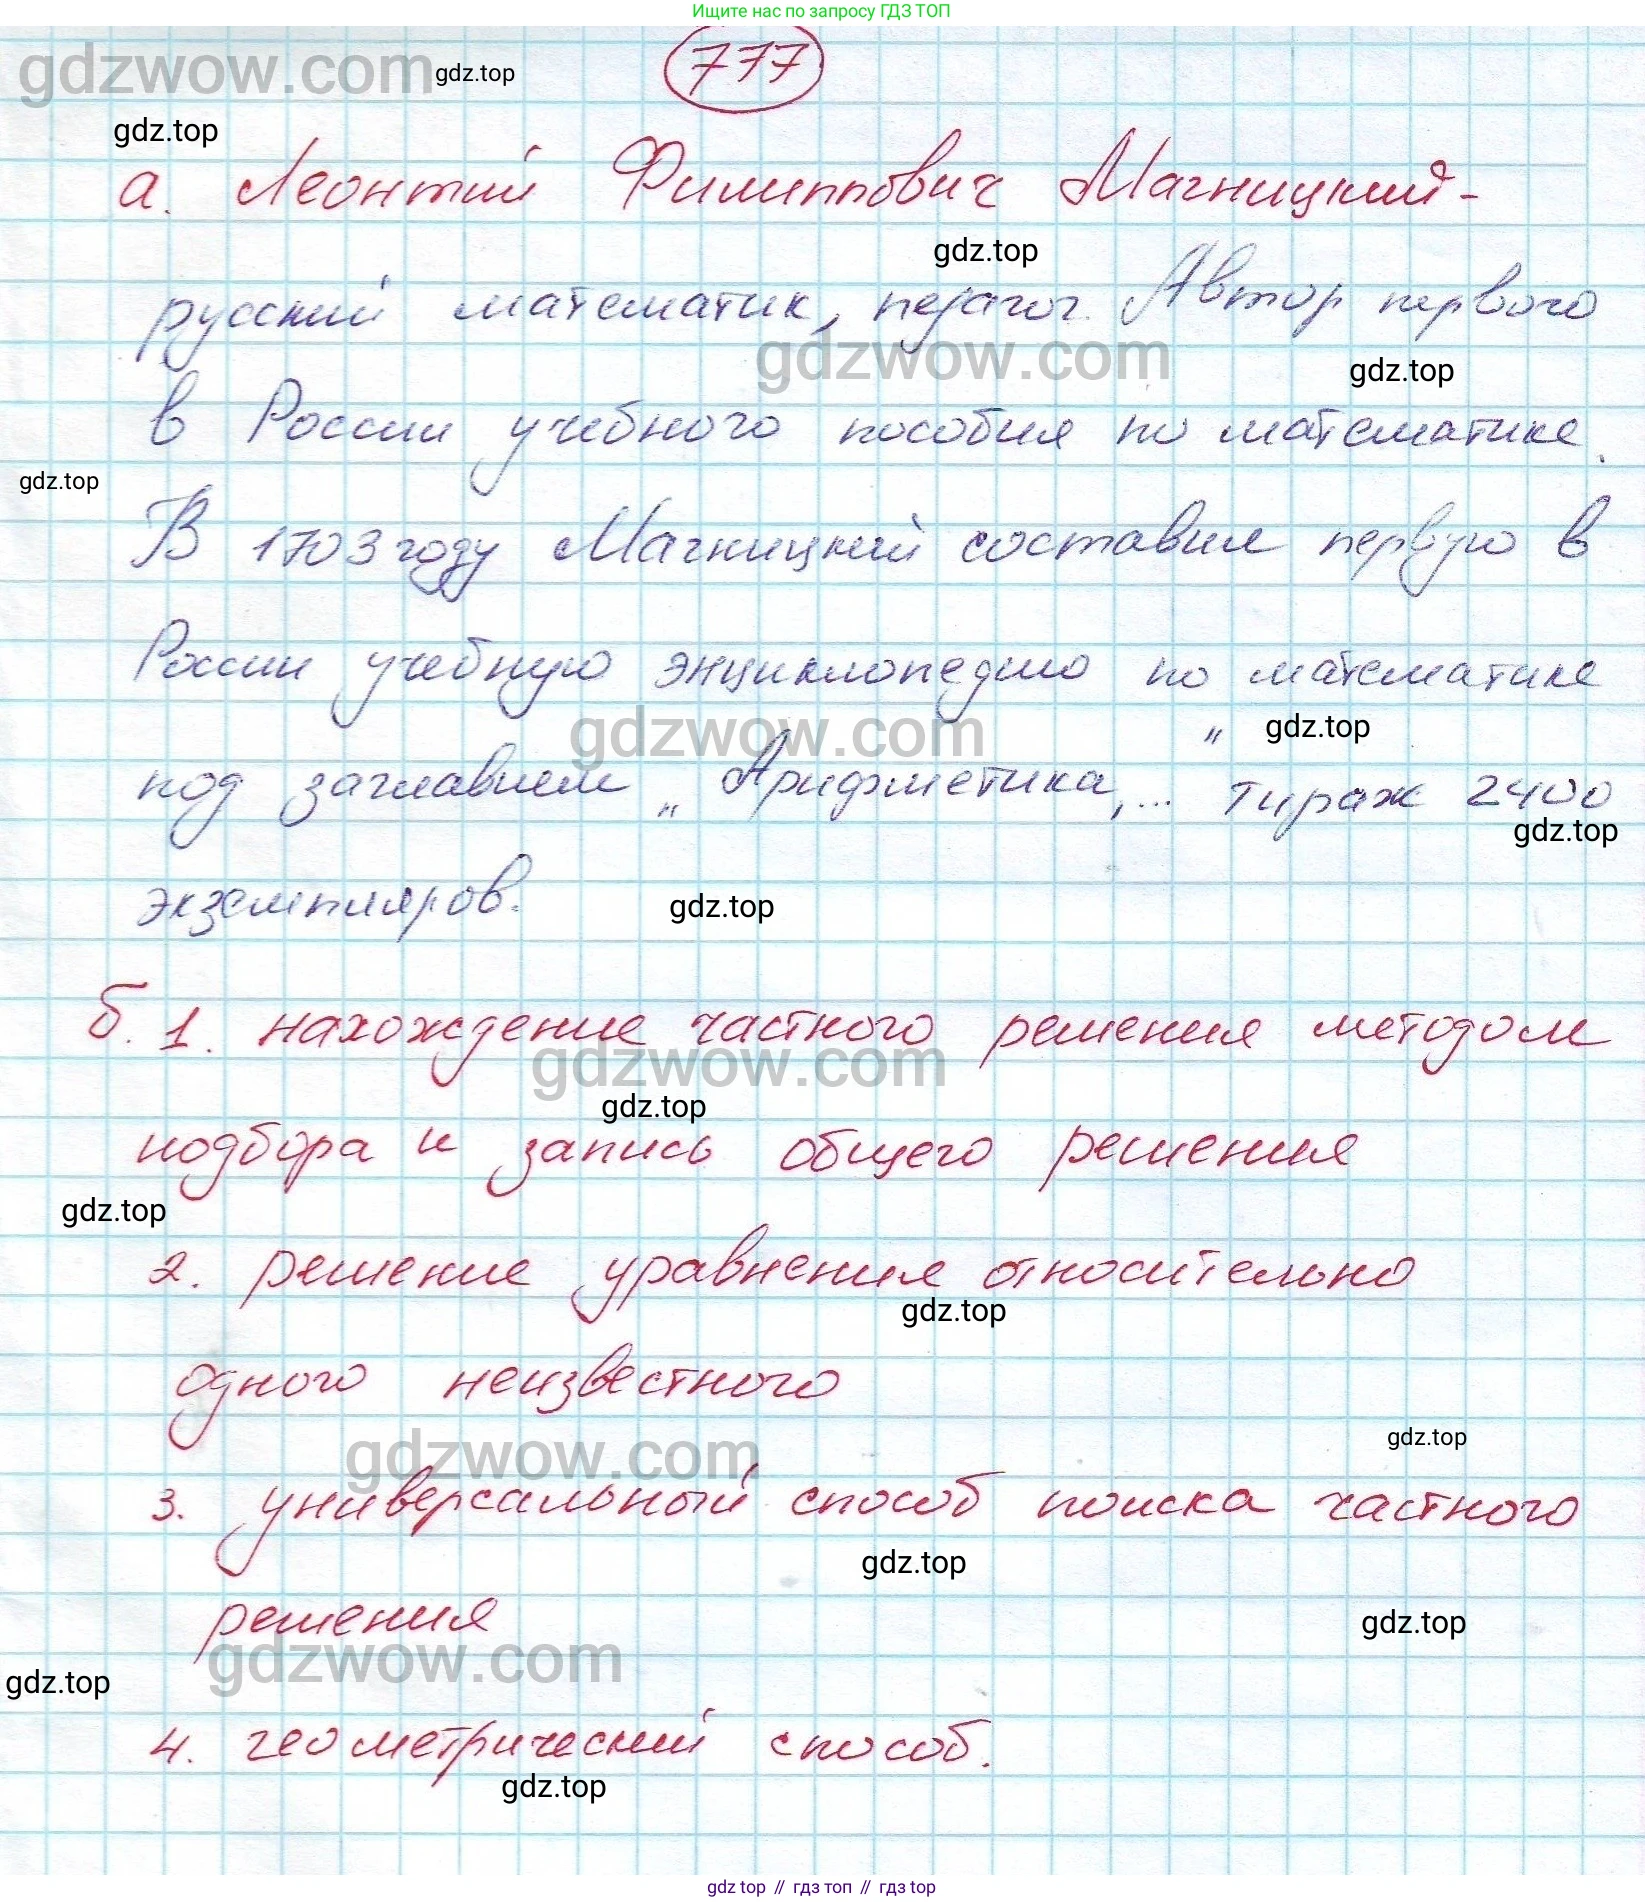 Ищите нас по запросу ГДЗ ТОП
777
gdzwow.com gdz.top
gdz.top
а. Леонтий Филиппович Магницкий -
gdz.top
русский математик, педагог. Автор первого
gdzwow.com
gdz.top
в России учебного пособия по математике.
gdz.top
В 1703 году Магницкий составил первую в
России учебную энциклопедию по математике
gdzwow.com
gdz.top
под заглавием „Арифметика,..." тираж 2400
gdz.top
экземпляров.
gdz.top
б. 1. нахождение частного решения методом
gdzwow.com
gdz.top
подбора и запись общего решения
gdz.top
2. решение уравнения относительно
gdz.top
одного неизвестного
gdz.top
gdzwow.com
3. универсальный способ поиска частного
gdz.top
решения
gdz.top
gdzwow.com
gdz.top
4. геометрический способ.
gdz.top
gdz top // гдз топ // гдз top